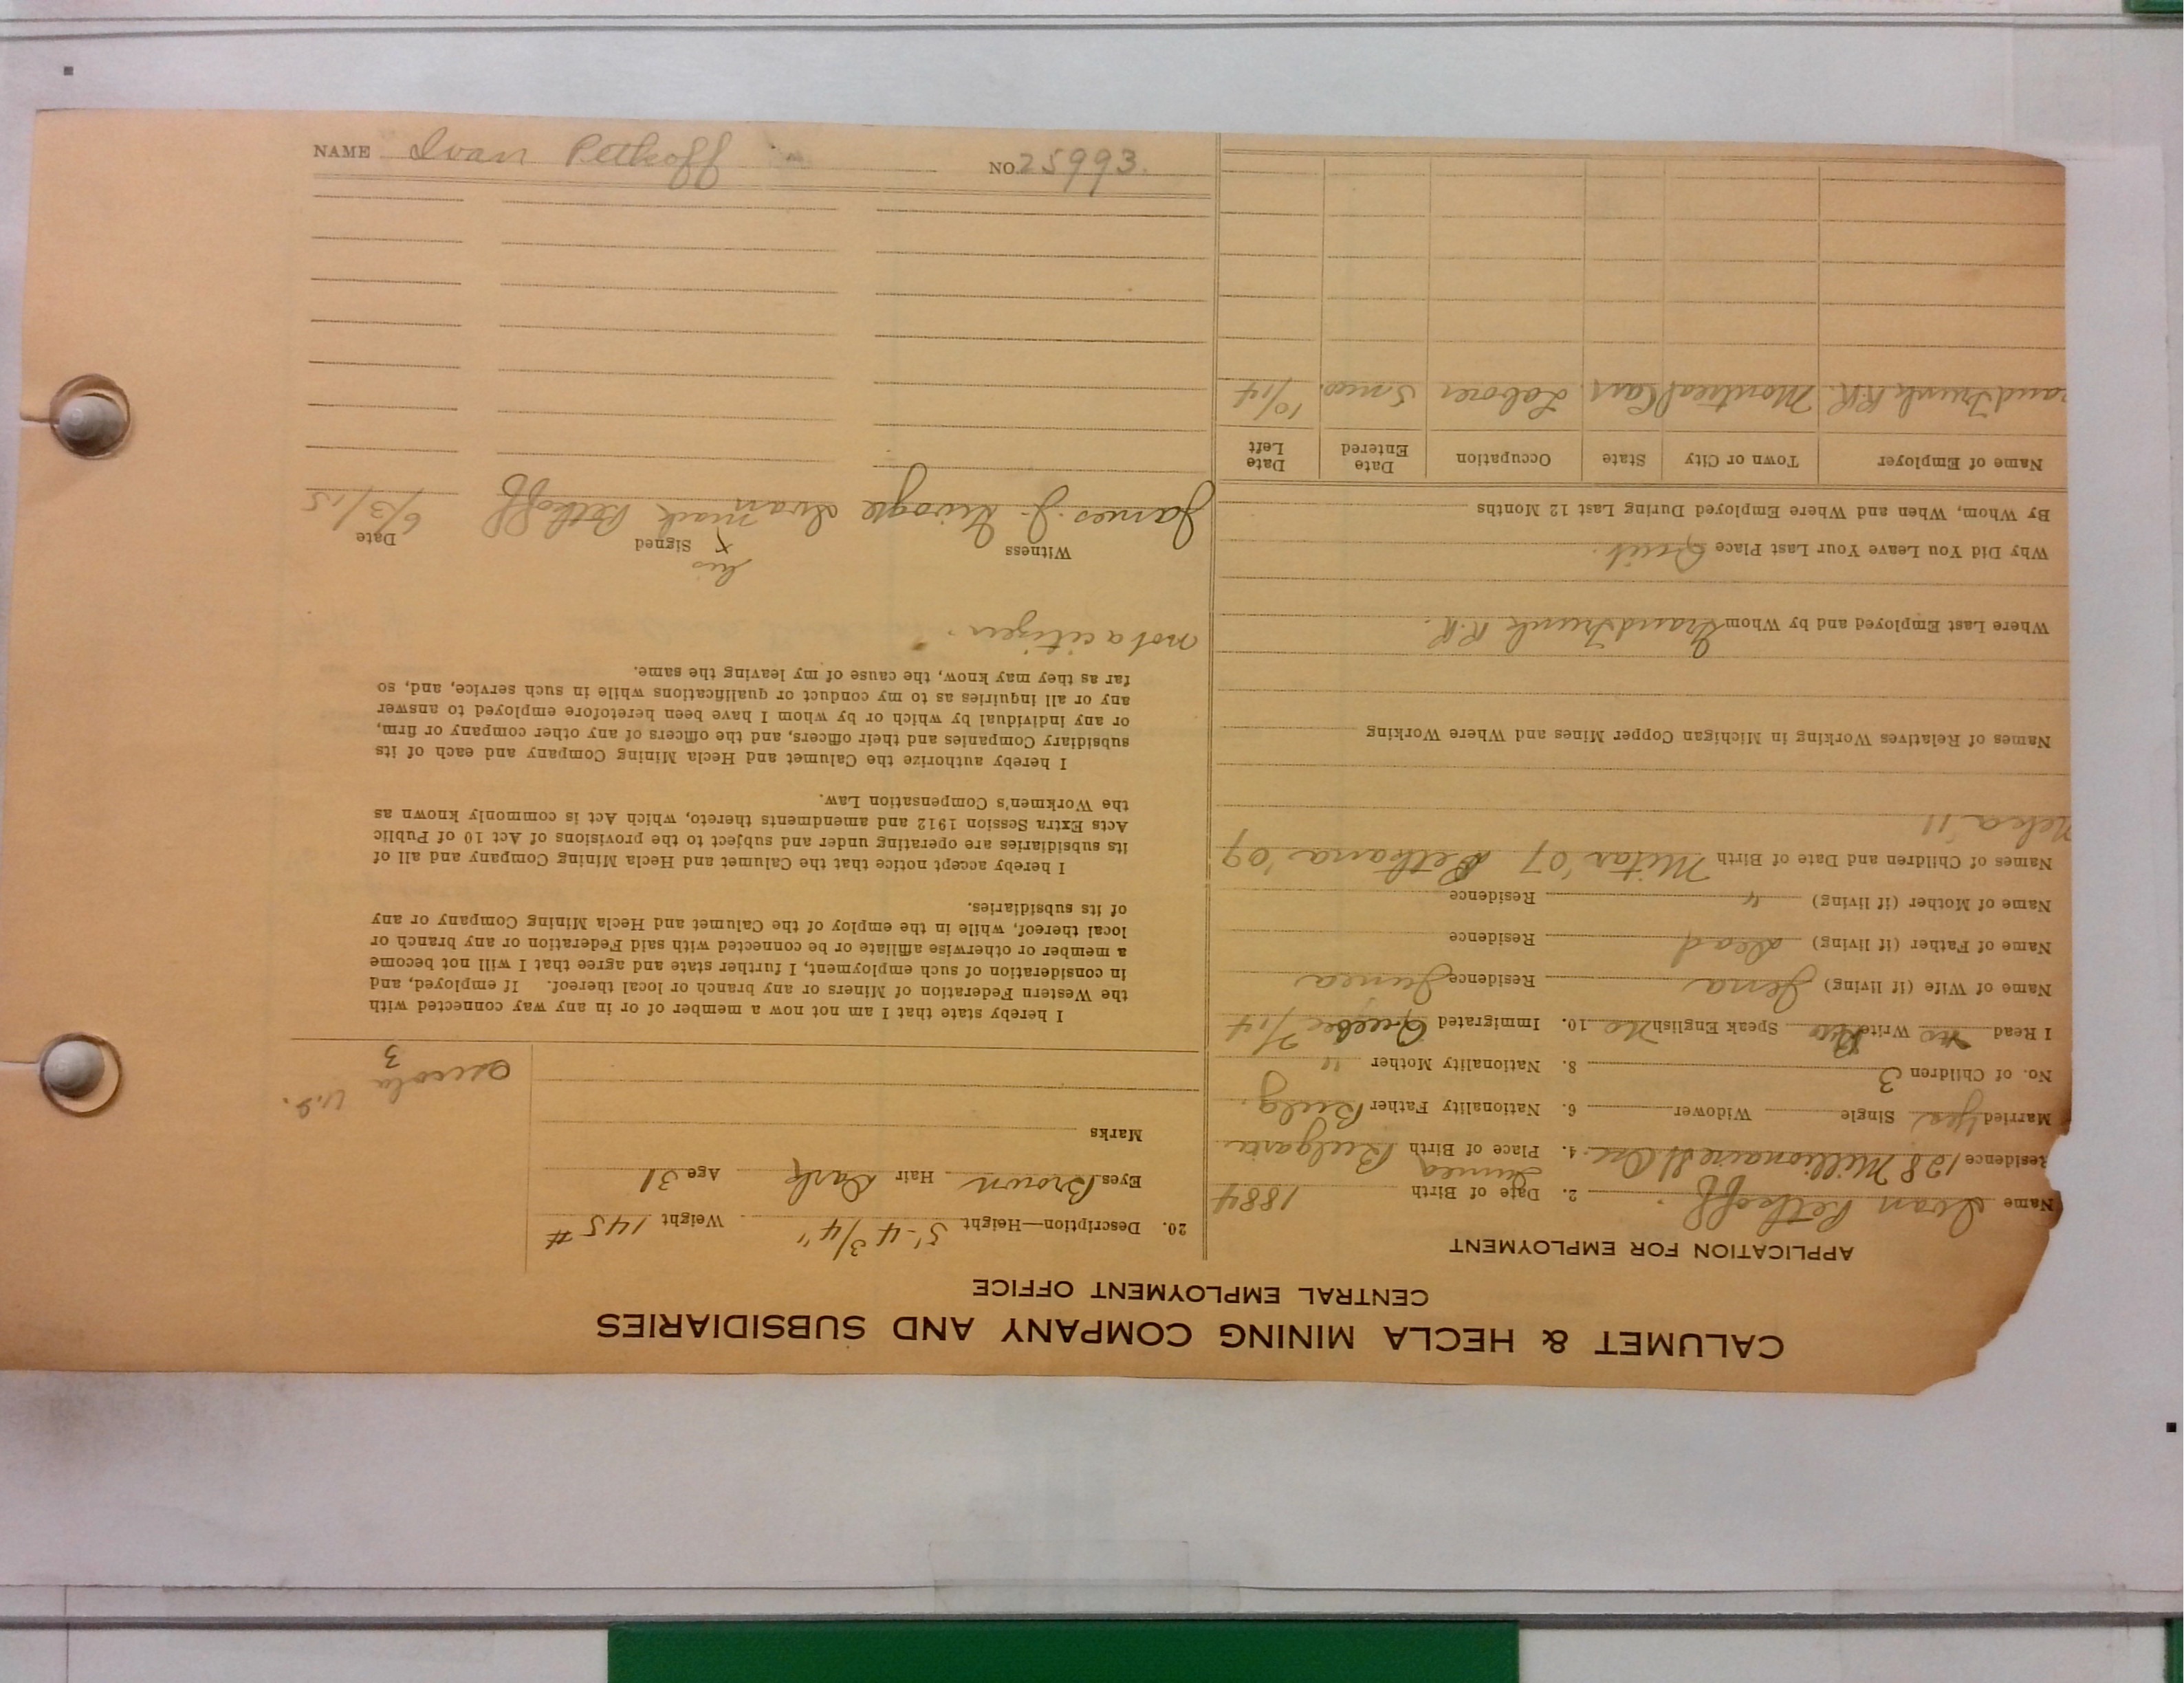 CALUMET & HECLA MINING COMPANY AND SUBSIDIARIES
CENTRAL EMPLOYMENT OFFICE
APPLICATION FOR EMPLOYMENT
Name Ivan Petkoff. 2. Date of Birth 1884
Residence 128 Millionaire St Osc. 4. Place of Birth Bulgaria
Married Yes Single Widower 6. Nationality Father Bulg.
No. of Children 3 8. Nationality Mother "
I Read No Write No Speak English No 10. Immigrated Quebec 2/14
Name of Wife (if living) Jena Residence
Name of Father (if living) Dead Residence
Name of Mother (if living) " Residence
Names of Children and Date of Birth Mitar '07 '09
'11
Names of Relatives Working in Michigan Copper Mines and Where Working
Where Last Employed and by Whom Grand Trunk R.R.
Why Did You Leave Your Last Place Quit.
By Whom, When and Where Employed During Last 12 Months
Name of Employer Town or City State Occupation Date Entered Date Left
and Trunk R.R. Montreal Can. Laborer 5 mos. 10/14
20. Description—Height 5'-4 3/4" Weight 145 #
Eyes Brown Hair Dark Age 31
Marks
U.S.
Osceola
3
I hereby state that I am not now a member of or in any way connected with
the Western Federation of Miners or any branch or local thereof. If employed, and
in consideration of such employment, I further state and agree that I will not become
a member or otherwise affiliate or be connected with said Federation or any branch or
local thereof, while in the employ of the Calumet and Hecla Mining Company or any
of its subsidiaries.
I hereby accept notice that the Calumet and Hecla Mining Company and all of
its subsidiaries are operating under and subject to the provisions of Act 10 of Public
Acts Extra Session 1912 and amendments thereto, which Act is commonly known as
the Workmen's Compensation Law.
I hereby authorize the Calumet and Hecla Mining Company and each of its
subsidiary Companies and their officers, and the officers of any other company or firm,
or any individual by which or by whom I have been heretofore employed to answer
any or all inquiries as to my conduct or qualifications while in such service, and, so
far as they may know, the cause of my leaving the same.
not a citizen.
Witness Signed Date
his
x
James J. Ivan mark Petkoff 6/3/15
NAME Ivan Petkoff NO. 25993.